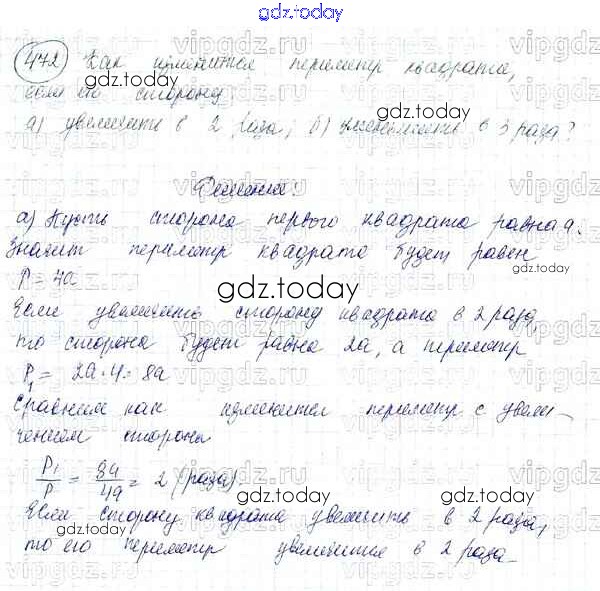 gdz.today
472 Как изменится периметр квадрата,
если его сторону:
а) увеличить в 2 раза; б) уменьшить в 3 раза?
Решение:
а) Пусть сторона первого квадрата равна а.
Значит периметр квадрата будет равен
P = 4a
Если увеличить сторону квадрата в 2 раза,
то сторона будет равна 2а, а периметр
P₁ = 2a · 4 = 8a
Сравним как изменится периметр с увели-
чением стороны
P₁/P = 8a/4a = 2 (раза).
Если сторону квадрата увеличить в 2 раза,
то его периметр увеличится в 2 раза